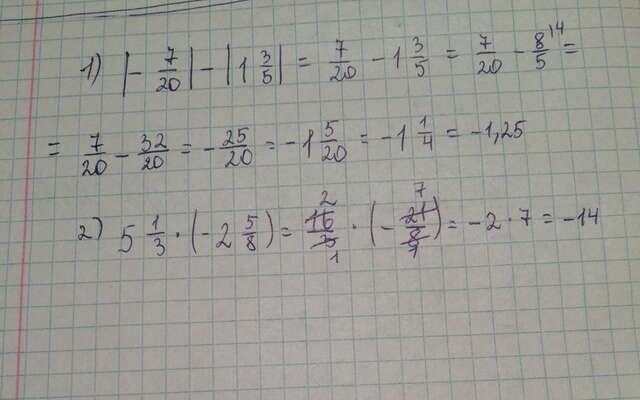 1) |-7/20| - |1 3/5| = 7/20 - 1 3/5 = 7/20 - 8/5 \4 =
= 7/20 - 32/20 = -25/20 = -1 5/20 = -1 1/4 = -1,25
2) 5 1/3 · (-2 5/8) = 16 2/3 1 · (-21 7/8 1) = -2 · 7 = -14